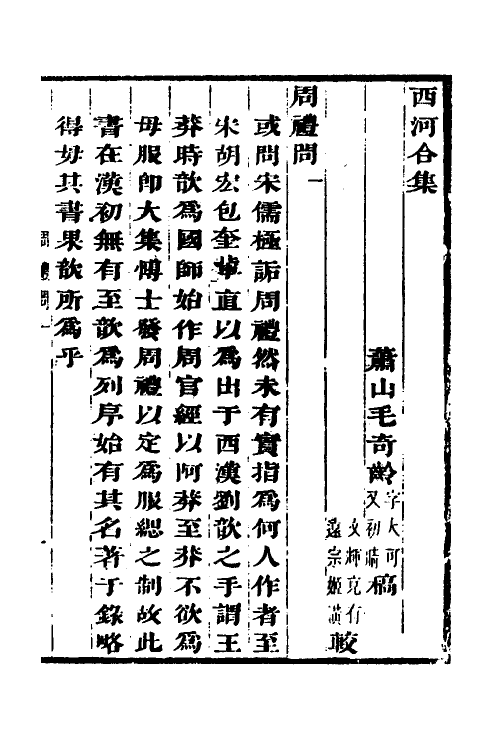 西河合集
蕭山毛奇齡字大可又初晴稿
文輝充有
遠宗姬潢較
周禮問一
或問宋儒極詬周禮然未有實指為何人作者至
宋胡宏包奎輩直以為出于西漢劉歆之手謂王
莽時歆為國師始作周官經以阿莽至莽不欲為
母服卽大集愽士發周禮以定為服緦之制故此
書在漢初無有至歆為列序始有其名著于錄略
得毋其書果歆所為乎
周禮問一